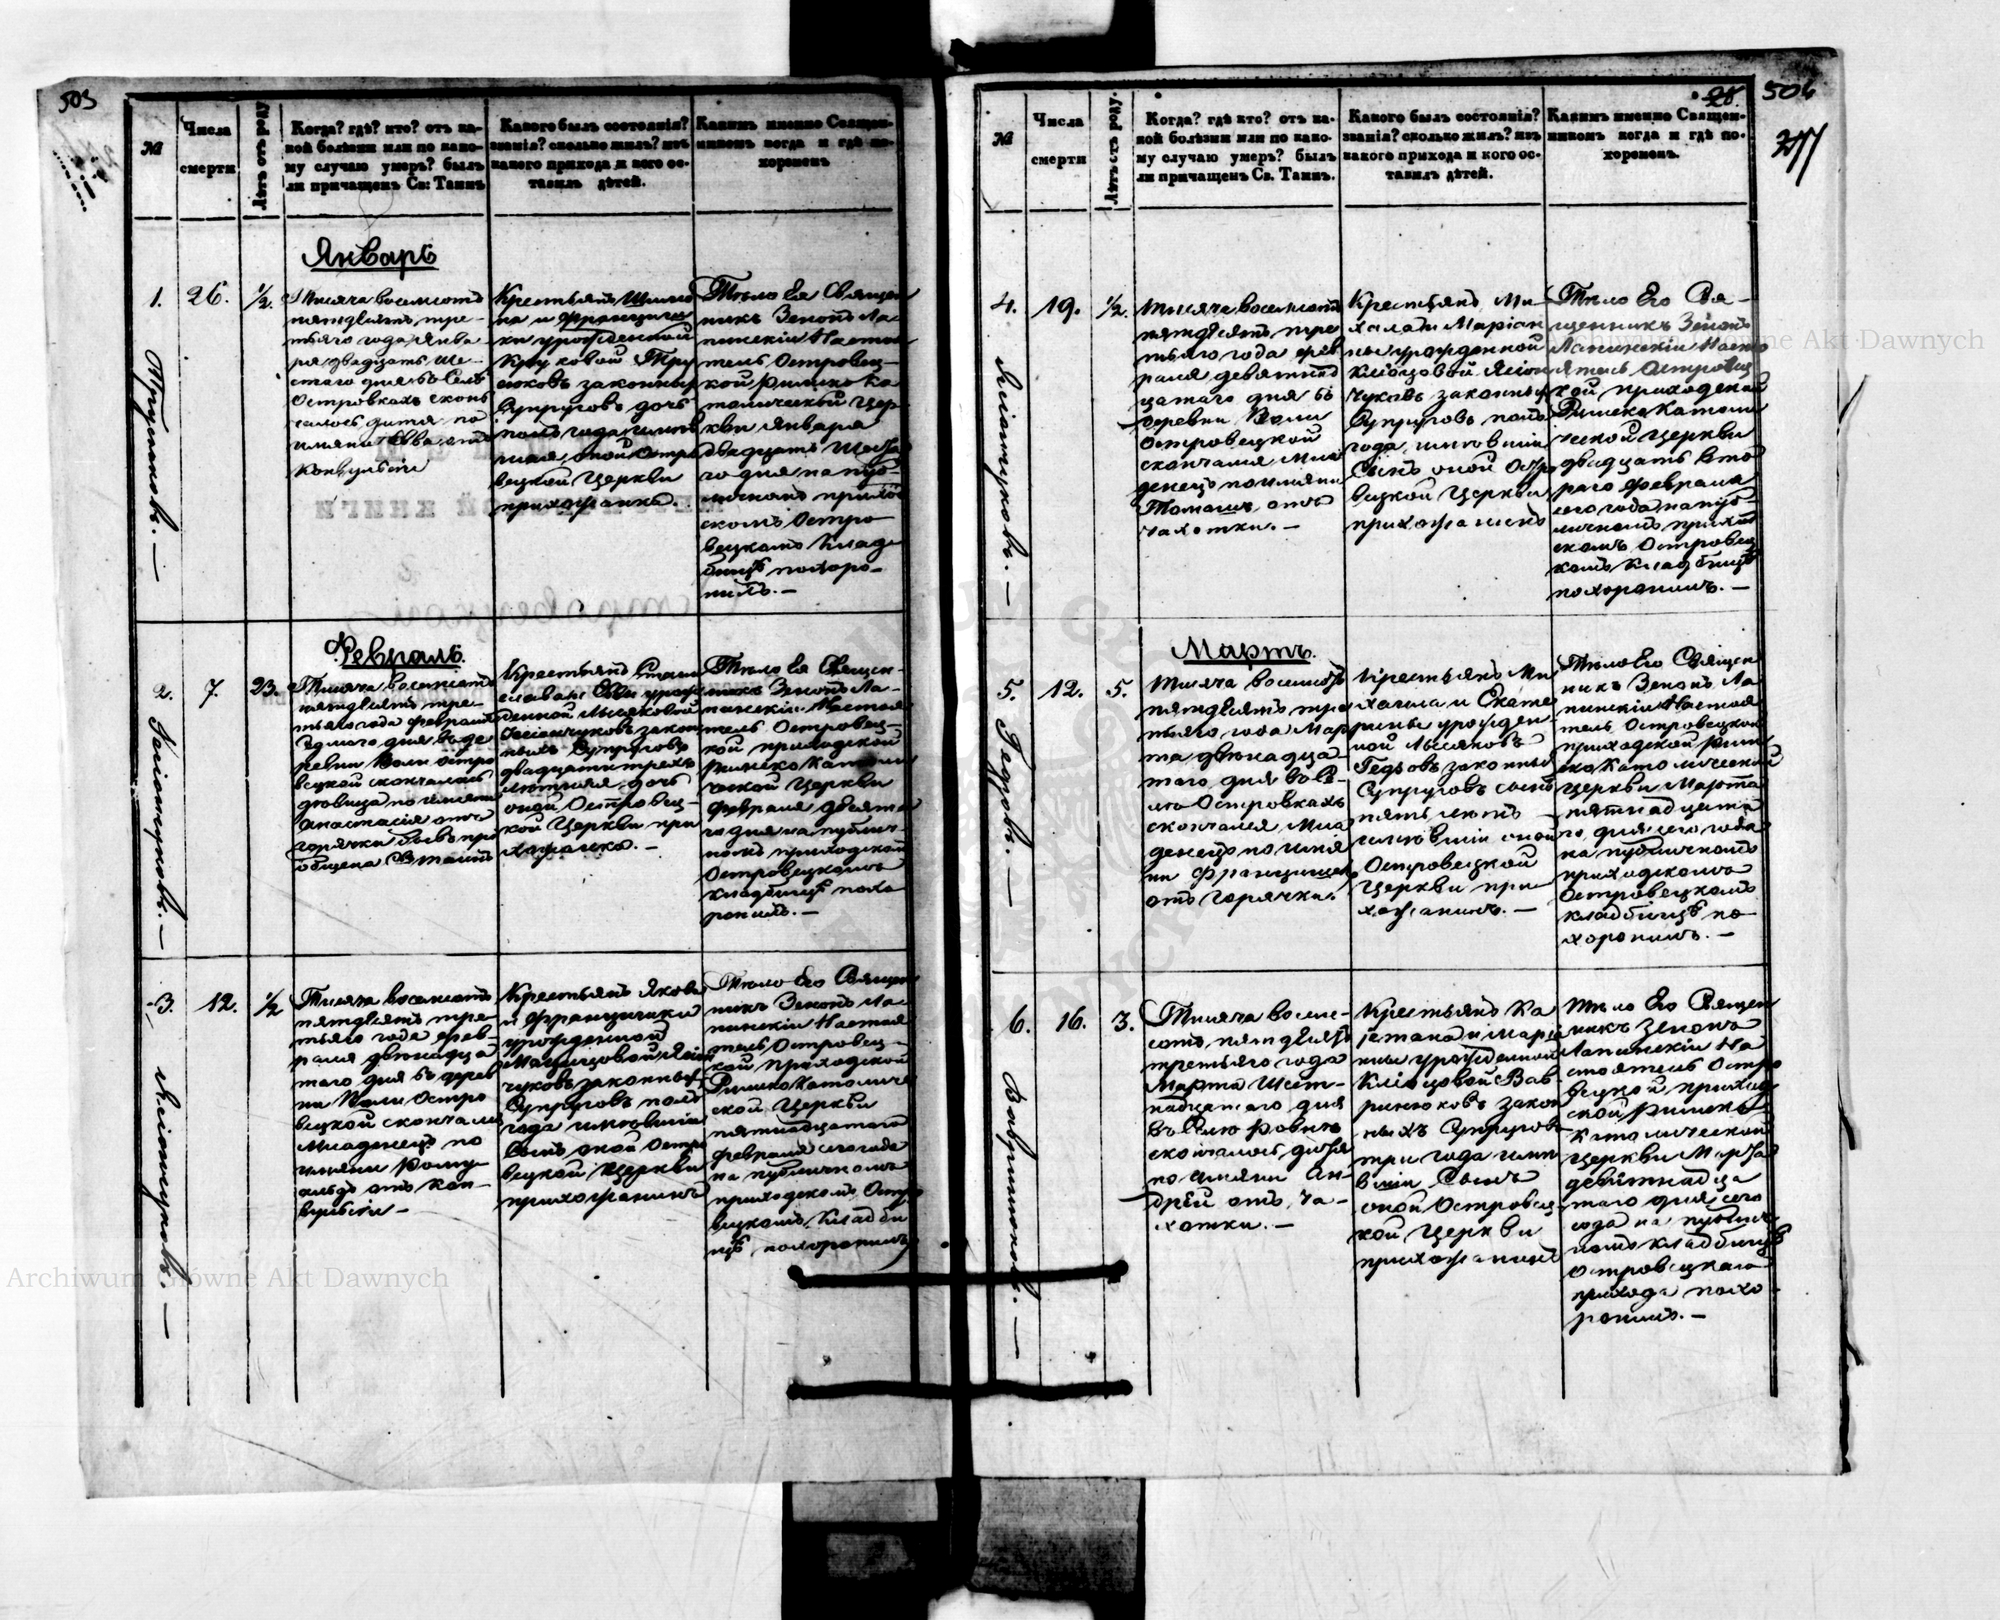 503
№
Числа
смерти
Лѣтъ отъ роду
Когда? гдѣ? кто? отъ ка-
кой болѣзни или по како-
му случаю умеръ? былъ
ли причащенъ Св: Таинъ
Какого былъ состоянія?
званія? сколько жилъ? изъ
какого прихода и кого ос-
тавилъ дѣтей.
Какимъ именно Священ-
никомъ когда и гдѣ по-
хороненъ
Январь
1.
26.
½.
Тысяча восемсотъ
пятдѣсятъ тре-
тьяго года Янва-
ря двадцать ше-
стаго дня въ Селѣ
Островкахъ скон
чалось дитя по
имяни Ева отъ
Конвульсіи
Крестьянъ
на и Франциш
ки урожденной
законныхъ
Супруговъ дочь
полъ года имев
шая оной Остро
вецкой Церкви
прихожанка.
Тѣло Ея Священ
никъ Зенонъ Ла-
пинскій Настоя
тель Островец-
кой Римско Ка
толической Цер-
кви Января
двадцать
го дня на пуб-
личномъ приход
скомъ Остро
вецкомъ Клад-
бищѣ похоро-
нилъ. —
Февраль.
2.
7.
23.
Тысяча восемсотъ
пятдѣсятъ тре-
тьяго года февраля
седмаго дня въ де
ревни Воли Остро
вецкой скончалась
дѣвица по имяни
Анастасія отъ
горячки бывъ прі
общена Св Таинъ
Крестьянъ Стани
слава и Евы урож
денной Лысяковой
закон
ныхъ Супруговъ
двадцатитрехъ
лѣтняя дочь
оной Островец-
кой Церкви при
хожанка. —
Тѣло Ея Священ-
никъ Зенонъ Ла-
пинскій Настоя
тель Островец-
кой приходской
Римско Католи
ческой Церкви
февраля девята
го дня на публич-
номъ приходской
Островецкомъ
кладбищѣ похо
ронилъ. —
3.
12.
½
Тысяча восемсотъ
пятдѣсятъ тре-
тьяго года фев-
раля двѣнадца
таго дня въ дерев
ни Воли Остро
вецкой скончался
Младенецъ по
имяни Рому-
альдъ отъ Кон-
вульсіи —
Крестьянъ Якова
и Францишки
урожденной
чуковъ законныхъ
Супруговъ полъ
года имевшій
Сынъ оной Остро
вецкой Церкви
прихожанинъ
Тѣло Его Священ
никъ Зенонъ Ла-
пинскій Настоя
тель Островец-
кой приходской
Римско Католиче
ской Церкви
пятнадцатаго
февраля сего года
на публичномъ
приходскомъ Остро
вецкомъ Кладби
щѣ похоронилъ
28.
504
277
№
Числа
смерти
Лѣтъ отъ роду.
Когда? гдѣ? кто? отъ ка-
кой болѣзни или по како-
му случаю умеръ? былъ
ли причащенъ Св. Таинъ.
Какого былъ состоянія?
званія? сколько жилъ? изъ
какого прихода и кого ос-
тавилъ дѣтей.
Какимъ именно Священ-
никомъ когда и гдѣ по-
хороненъ.
4.
19.
½.
тысяча восемсотъ
пятдѣсятъ тре
тьяго года фев
раля девятнад
цатаго дня въ
деревни Воли
Островецкой
скончался Мла
денецъ по имяни
Томашъ отъ
чахотки. —
Крестьянъ Ми-
хала и Маріан
ны урожденной
чуковъ законныхъ
Супруговъ полъ
года имевшій
Сынъ оной Остро
вецкой Церкви
прихожанинъ
Тѣло Его Свя-
щенникъ Зенонъ
Лапинскій Насто
ятель Островец
кой приходской
Римско Католи
ческой Церкви
двадцать вто
раго февраля
сего года на пуб
личномъ приход
скомъ Островец
комъ Кладбищѣ
похоронилъ. —
Мартъ.
5.
12.
5.
Гедзовъ. —
Тысяча восемсотъ
пятдѣсятъ тре
тьяго года Мар
та двѣнадца
таго дня въ Се-
лѣ Островкахъ
скончался Мла
денецъ по имя
ни Францишекъ
отъ горячки.
Крестьянъ Ми
хаила и Екате
рины урожден
ной Лысяковъ
Гедзовъ законныхъ
Супруговъ сынъ
пять лѣтъ
имевшій оной
Островецкой
Церкви при
хожанинъ. —
Тѣло Его Священ
никъ Зенонъ Ла
пинскій Настоя
тель Островецкой
приходской Рим
ско Католической
Церкви Марта
пятнадцата
го дня сего года
на публичномъ
приходскомъ
Островецкомъ
кладбищѣ по-
хоронилъ. —
6.
16.
3.
Вавринюковъ. —
Тысяча восем-
сотъ пятдѣсятъ
третьяго года
Марта Шест-
надцатаго дня
въ Селѣ Ровномъ
скончалось дитя
по имяни Ан-
дрей отъ ча-
хотки. —
Крестьянъ Ка
етана и Маріа
нны урожденной
Вав
ринюковъ закон
ныхъ Супруговъ
три года имев
шій Сынъ
оной Островец-
кой Церкви
прихожанинъ
Тѣло Его Священ
никъ Зенонъ
Лапинскій На
стоятель Остро
вецкой приход
ской Римско-
Католической
Церкви Марта
девятнадца
таго дня сего
года на публич
номъ кладбищѣ
Островецкаго
прихода похо
ронилъ. —
Archiwum Główne Akt Dawnych
Archiwum Główne Akt Dawnych